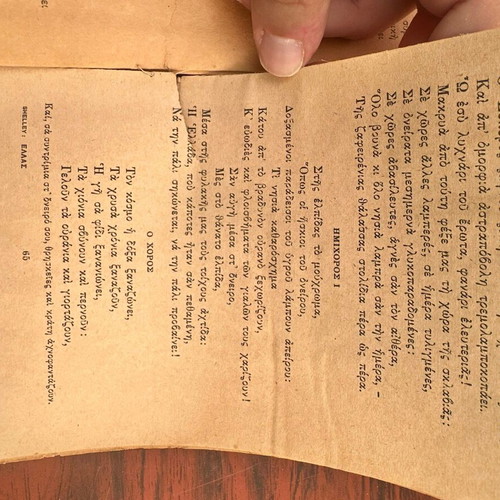 Καὶ ἀπ' ὀμορφιὰ ἀστραπόβολη τρεμολαμποκοπάει.
Ὦ ἐσὺ λυχνάρι τοῦ ἔρωτα, φανάρι ἐλευτεριᾶς!
Μακρυὰ ἀπὸ τούτη φέξε μας τὴ χώρα τῆς σκλαβιᾶς:
Σὲ χῶρες ἄλλες λαμπερές, σὲ ἥμερα τυλιγμένες,
Σὲ ὀνείρατα μεσημερνὰ γλυκοπαραδομένες:
Σὲ χῶρες ἀβασίλευτες, ἁγνὲς σὰν τὸν αἰθέρα,
Ὅλο βουνὰ κι ὅλο νησιὰ λαμπρὰ σὰν τὴν ἡμέρα,—
Τῆς ζαφειρένιας θάλασσας στολίδια πέρα ὡς πέρα.
ΗΜΙΧΟΡΟΣ Ι
Στῆς ἐλπίδας τὸ μούχρωμα,
Ὅπως οἱ ἥσκιοι τοῦ ὀνείρου,
Δοξασμένοι παράδεισοι τοῦ ὑγροῦ λάμπουν ἀπείρου:
Τί νησιὰ καθαρόσχημα
Κάτου ἀπ' τὸ βραδυνὸν οὐρανὸ ξεχωρίζουν,
Κ' εὐωδιὲς καὶ φλοισβήματα τῶν γιαλῶν τους χαρίζουν!
Σὰν αὐγὴ μέσα στ' ὄνειρο,
Μὲς στὸ θάνατο ἐλπίδα,
Μέσα στῆς φυλακῆς μας τοὺς τοίχους ἀχτίδα:
Ἡ Ἑλλάδα, ποὺ κάποτες ἦταν σὰν πεθαμένη,
Νά την πάλι σηκώνεται, νά την πάλι προβαίνει!
Ο ΧΟΡΟΣ
Τὸν κόσμο ἡ δόξα ξαναζώνει,
Τὰ χρυσᾶ χρόνια ξαναζοῦν,
Ἡ γῆ σὰ φίδι ξανανιώνει,
Τὰ χιόνια σβύνουν καὶ περνοῦν:
Γελοῦν τὰ οὐράνια καὶ γιορτάζουν,
Καί, σὰ συντρίμια στ' ὄνειρό σου, θρησκεῖες καὶ κράτη ἀχνοφαντάζουν.
SHELLEY: ΕΛΛΑΣ 65